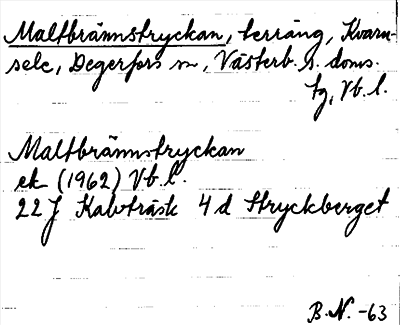 Maltbrännstryckan, terräng, Kvarn-
sele, Degerfors sn, Västerb. s. doms.
tg, Vb. l.
Maltbrännstryckan
ek (1962) Vb l.
22 J Kalvträsk 4 d Stryckberget
B.N. -63